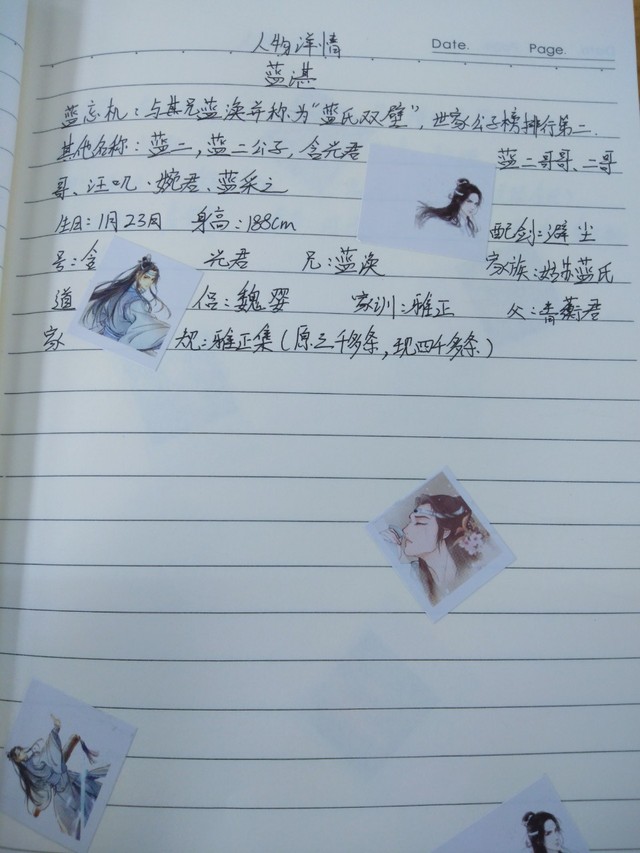 人物详情
Date. Page.
蓝湛
蓝忘机：与其兄蓝涣并称为“蓝氏双壁”，世家公子榜排行第二.
其他名称：蓝二，蓝二公子，含光君 蓝二哥哥、二哥
哥、汪叽·婉君、蓝采之
生日：1月23日 身高：188cm 配剑：避尘
号：含 光君 兄：蓝涣 家族：姑苏蓝氏
道 侣：魏婴 家训：雅正 父：青蘅君
家 规：雅正集（原三千多条，现四千多条）